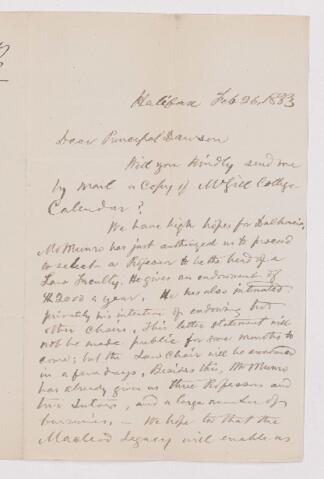 Halifax Feb 26, 1883
Dear Principal Dawson
Will you kindly send me
by mail a copy of McGill College
Calendar?
We have high hopes for Dalhousie.
Mr Munro has just authorized us to proceed
to select a Professor to be the head of a
Law Faculty. He gives an endowment of
$2000 a year. He has also intimated
privately his intention of endowing two
other Chairs. This latter statement will
not be made public for some months to
come; but the Law Chair will be announced
in a few days. Besides this, Mr Munro
has already given us three Professors and
two Tutors, and a large number of
bursaries. — We hope too that the
Macleod Legacy will enable us